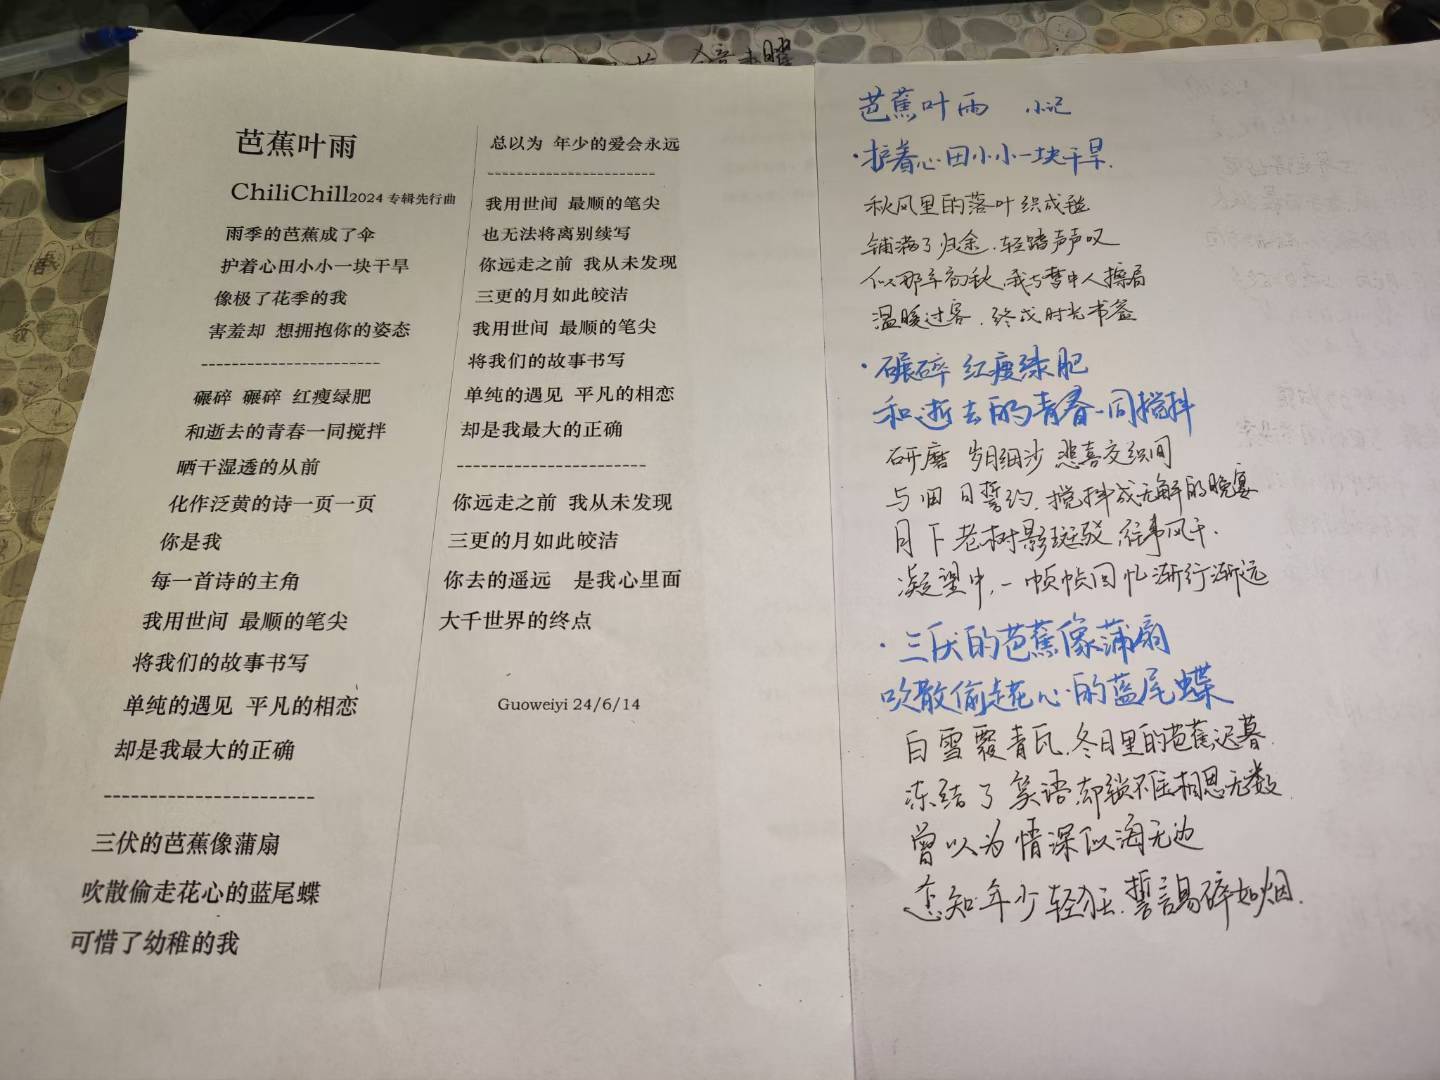 芭蕉叶雨
ChiliChill2024 专辑先行曲
雨季的芭蕉成了伞
护着心田小小一块干旱
像极了花季的我
害羞却 想拥抱你的姿态
-------------------------
碾碎 碾碎 红瘦绿肥
和逝去的青春一同搅拌
晒干湿透的从前
化作泛黄的诗一页一页
你是我
每一首诗的主角
我用世间 最顺的笔尖
将我们的故事书写
单纯的遇见 平凡的相恋
却是我最大的正确
-------------------------
三伏的芭蕉像蒲扇
吹散偷走花心的蓝尾蝶
可惜了幼稚的我
总以为 年少的爱会永远
-----------------------
我用世间 最顺的笔尖
也无法将离别续写
你远走之前 我从未发现
三更的月如此皎洁
我用世间 最顺的笔尖
将我们的故事书写
单纯的遇见 平凡的相恋
却是我最大的正确
-------------------------
你远走之前 我从未发现
三更的月如此皎洁
你去的遥远 是我心里面
大千世界的终点
Guoweiyi 24/6/14
芭蕉叶雨 小记
·护着心田小小一块干旱.
秋风里的落叶织成毯
铺满了归途,轻踏声声叹
似那年初秋,我与梦中人擦肩
温暖过客,终成时光书签
·碾碎 红瘦绿肥
和逝去的青春一同搅拌
研磨 岁月细沙 悲喜交织间
与旧日誓约,搅拌成无解的晚宴
月下老树影斑驳,往事风干.
凝望中,一帧帧回忆渐行渐远
·三伏的芭蕉像蒲扇
吹散偷走花心的蓝尾蝶
白雪覆青瓦,冬日里的芭蕉迟暮.
冻结了笑语,却锁不住相思无数.
曾以为情深似海无边
怎知年少轻狂,誓言易碎如烟.